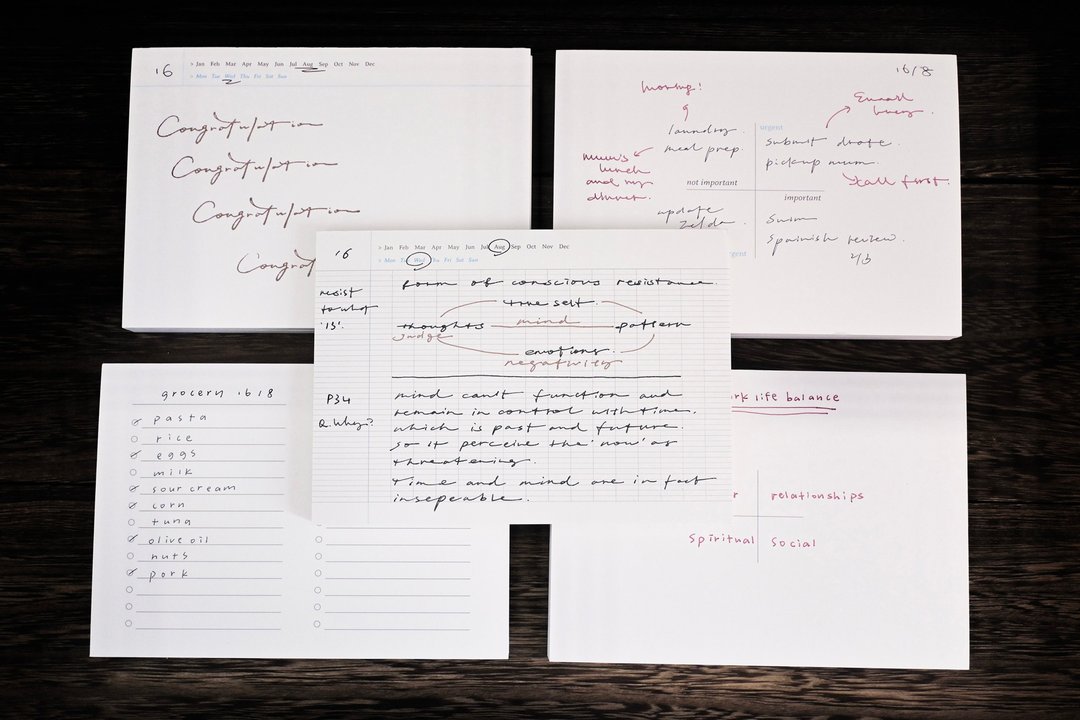 16
> Jan Feb Mar Apr May Jun Jul Aug Sep Oct Nov Dec
> Mon Tue Wed Thu Fri Sat Sun
Congratulation
Congratulation
Congratulation
Congrat
16/8
morning!
laundry.
meal prep.
mum's
lunch
and my
dinner.
Email
urgent
submit
pickup mum.
call first.
not important
important
update
zelda.
Swim
Spanish review.
gent
'6
> Jan Feb Mar Apr May Jun Jul Aug Sep Oct Nov Dec
> Mon Tue Wed Thu Fri Sat Sun
resist
to what
'is'.
form of conscious resistance.
true self.
thoughts mind pattern
judge
emotions.
negativity
P34
Q. Why?
mind can't function and
remain in control without time.
which is past and future.
so it perceive the 'now' as
threatening.
Time and mind are in fact
insepeable.
grocery 16/8
pasta
rice
eggs
milk
sour cream
corn
tuna
olive oil
nuts
pork
rk life balance
r relationships
spiritual social